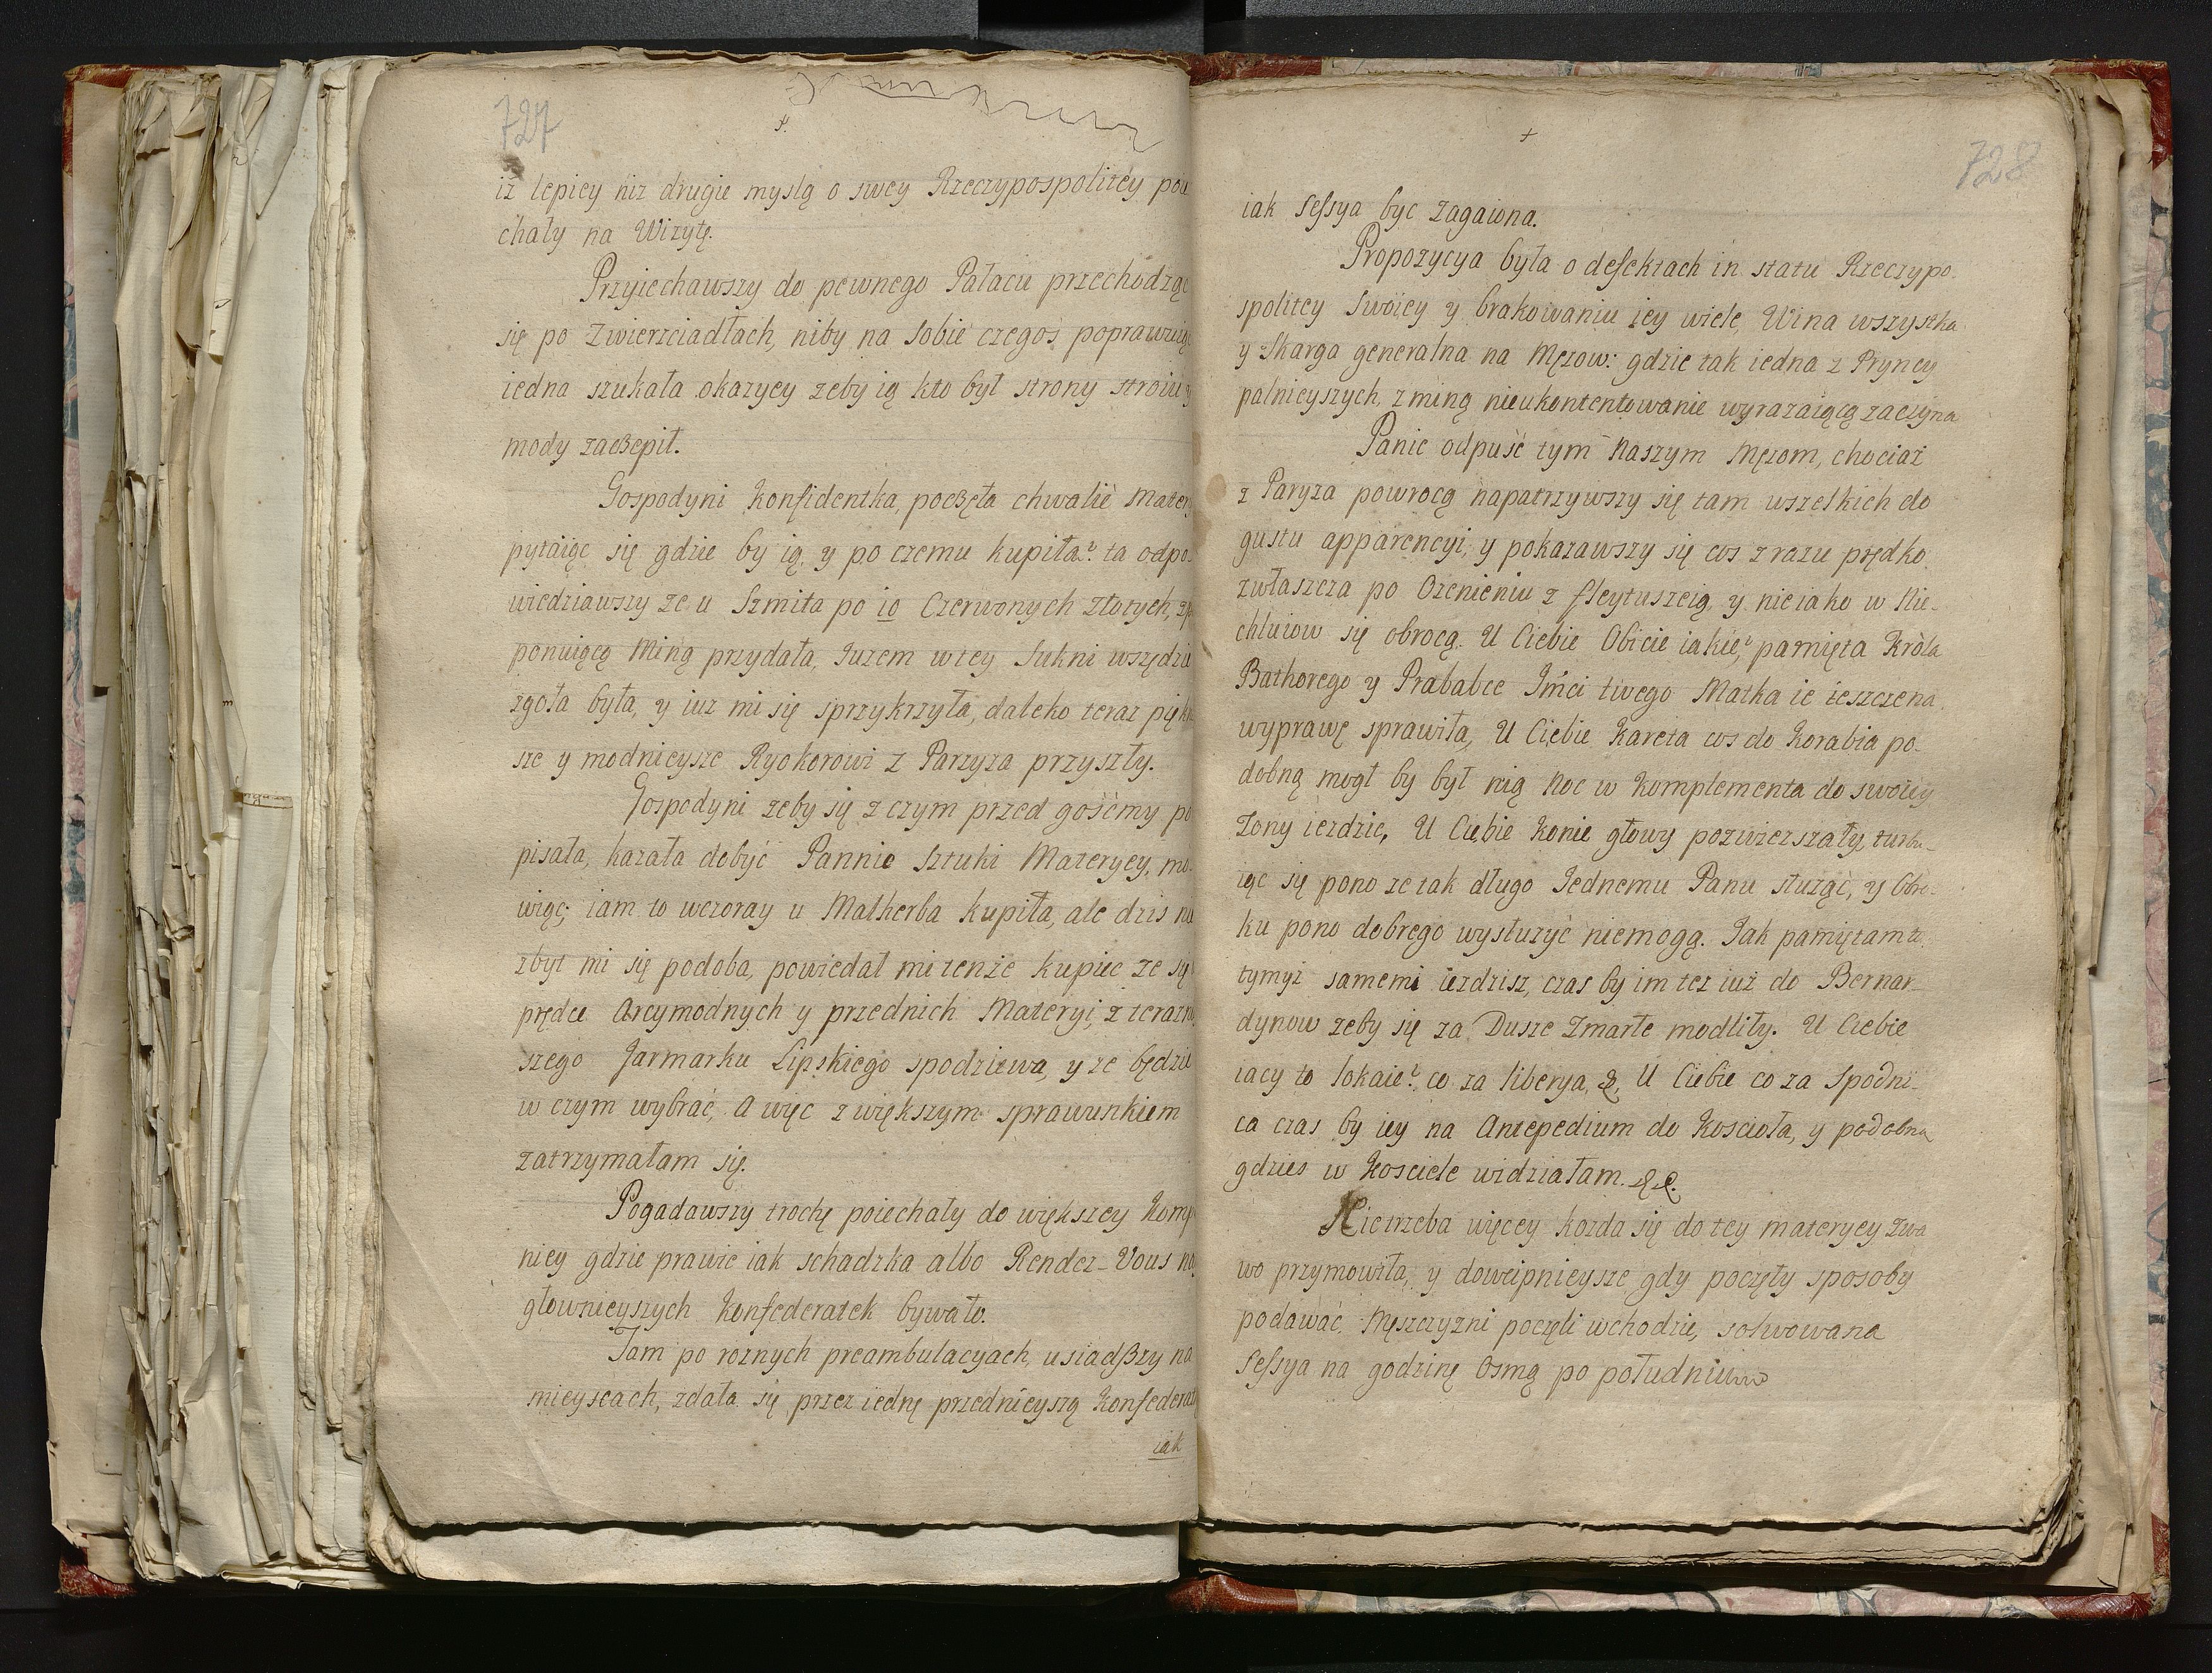 727
iż lepiey niz drugie myslą o swey Rzeczypospolitey poie
chały na Wizytę.
Przyiechawszy do pewnego Pałacu przechodząc
się po Zwierściadłach, niby na Sobie czegos poprawuiąc
iedna szukała okazycy zeby ią kto był strony stroiu y
mody zaczepił.
Gospodyni Konfidentka, poczęła chwalić mater
pytaiąc się gdzie by ią, y po czemu kupiła? ta odpo
wiedziawszy ze u Szmita po 10 Czerwonych Złotych,
ponuiącą Miną przydała, Iuzem w tey Sukni wszędzie
zgoła była, y iuz mi się sprzykrzyła, daleko teraz piękn
sze y modnieysze Ryokorowi z Parzyza przyszły.
Gospodyni zeby się z czym przed gośćmy po
pisała, kazała dobyć Pannie Sztuki Materyey, mo
wiąc; iam to wczoray u Malherba kupiła, ale dzis nie
zbyt mi się podoba, powiedał mi tenże kupiec ze się
prędce Arcymodnych y przednich Materyi, z terazn
szego Jarmarku Lipskiego spodziewa, y ze będzie
w czym wybrać, A więc z większym sprawunkiem
zatrzymałam się.
Pogadawszy trochę poiechały do większey Komp
niey gdzie prawie iak schadzka albo Rendez-Vous na
głownieyszych Konfederatek bywało.
Tam po roznych preambulacyach, usiadszy na
mieyscach, zdała się przez iednę przednieyszą Konfederat
iak
728
iak Sessya byc zagaiona.
Propozycya była o defektach in statu Rzeczypo
spolitey Swoiey y brakowaniu iey wiele, Wina wszystka
y Skarga generalna na Męzow: gdzie tak iedna z Pryncy
palnieyszych, z miną nieukontentowanie wyrazaiącą zaczyna
Panie odpuść tym Naszym Męzom, chociaż
z Paryza powrocą napatrzywszy się tam wszelkich do
gustu apparencyi, y pokazawszy się cos z razu prędko
zwłaszcza po Ozenieniu z fleytuszcią, y nieiako w Nie-
chluiow się obrocą. U Ciebie Obicie iakie? pamięta Króla
Bathorego y Prababce Imci twego Matka ie ieszcze na
wyprawę sprawiła, U Ciebie Kareta cos do Korabia po-
dobną mogł by był nią Noe w Komplementa do swoiey
Zony iezdzić, U Ciebie Konie głowy pozwierszały, turbu-
iąc się pono ze tak długo Iednemu Panu służąc, y Obro-
ku pono dobrego wysłuzyć niemogą. Iak pamiętam to
tymyż samemi iezdzisz, czas by im tez iuż do Bernar-
dynow zeby się za Dusze Zmarłe modliły. U Ciebie
iacy to lokaie? co za liberya, &. U Ciebie co za Spodni-
ca czas by iey na Antepedium do Koscioła, y podobną
gdzies w Kosciele widziałam. &&.
Nietrzeba więcey kozda się do tey materyey zwa
wo przymowiła, y dowcipnieysze gdy poczęły sposoby
podawać, Męszczyzni poczęli wchodzic, solwowana
Sessya na godzinę Osmą po południu